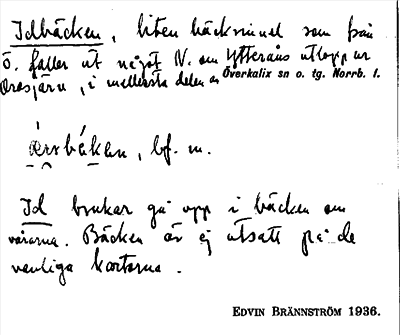 Idbäcken, liten bäckrännel som från
Ö. faller ut något N. om Ytteråns utlopp ur
Orrsjärv, i mellersta delen av Överkalix sn o. tg. Norrb. l.
bf. m.
Id brukar gå upp i bäcken om
vårarna. Bäcken är ej utsatt på de
vanliga kartorna.
EDVIN BRÄNNSTRÖM 1936.